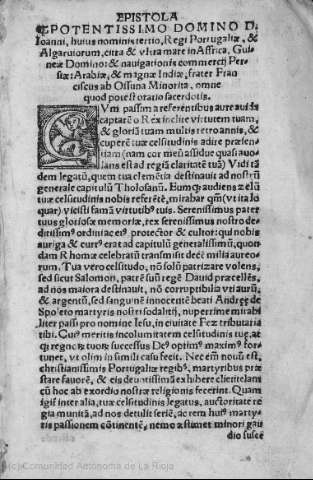 EPISTOLA
POTENTISSIMO DOMINO D.
Ioanni, huius nominis tertio, Regi Portugaliæ, &
Algaruiorum, citra & vltra mare in Affrica, Gui
neæ Domino: & nauigationis commercij Per
siæ: Arabiæ, & magnæ Indiæ, frater Fran
ciscus ab Ossuna Minorita, omne
quod potest oratio sacerdotis.
CVm passim a referentibus aure
captarē o Rex inclite virtutem tuam,
& gloriā tuam multis retro annis, &
cuperē tuæ celsitudinis adire præsen
tiam (nam cor meū assidue quasi auo
lans est ad regiā claritatē tuā) Vidi tā
dem legatū, quem tua clemētia destinauit ad nostrū
generale capitulū Tholosanū. Eumq; audiens z elū
tuæ celsitudinis nobis referētē, mirabar qm̄ (vt ita lo
quar) vicisti famā virtutib9 tuis. Serenissimus pater
tuus gloriosæ memoriæ, rex serenissimus nostro de
ditissim9 ordini ac ei9 protector & cultor: qui nobis
auriga & curr9 erat ad capitulū generalissimū, quon
dam Rhomæ celebratū transmisit decē milia aureo
rum. Tua vero celsitudo, nō solū patrizare volens,
sed sicut Salomon, patrē suū regē Dauid præcellēs,
ad nos maiora destinauit, nō corruptibilia vti aurū,
& argentū, sed sanguinē innocentē beati Andreę de
Spoleto martyris nostri sodalitij, nuperrime mirabi
liter passi pro nomine Iesu, in ciuitate Fez tributaria
tibi. Cui9 meritis incolumitatem celsitudinis tuę, at
q; regnorū tuorū successus De9 optim9 maxim9 for
tunet, vt olim in simili casu fecit. Nec em̄ nouū est,
christianissimis Portugaliæ regib9, martyribus præ
stare fauorē, & eis deuotissimā exhibere clientelam
cū hoc ab exordio nostræ religionis fecerint. Quam
igif inter alia, tuæ celsitudinis legatus, auctoritate re
gia munitā, ad nos detulit seriē, ac rem hui9 marty
ris passionem cōtinentē, nemo æstimet minori gau
dio susce
(c) Comunidad Autónoma de La Rioja